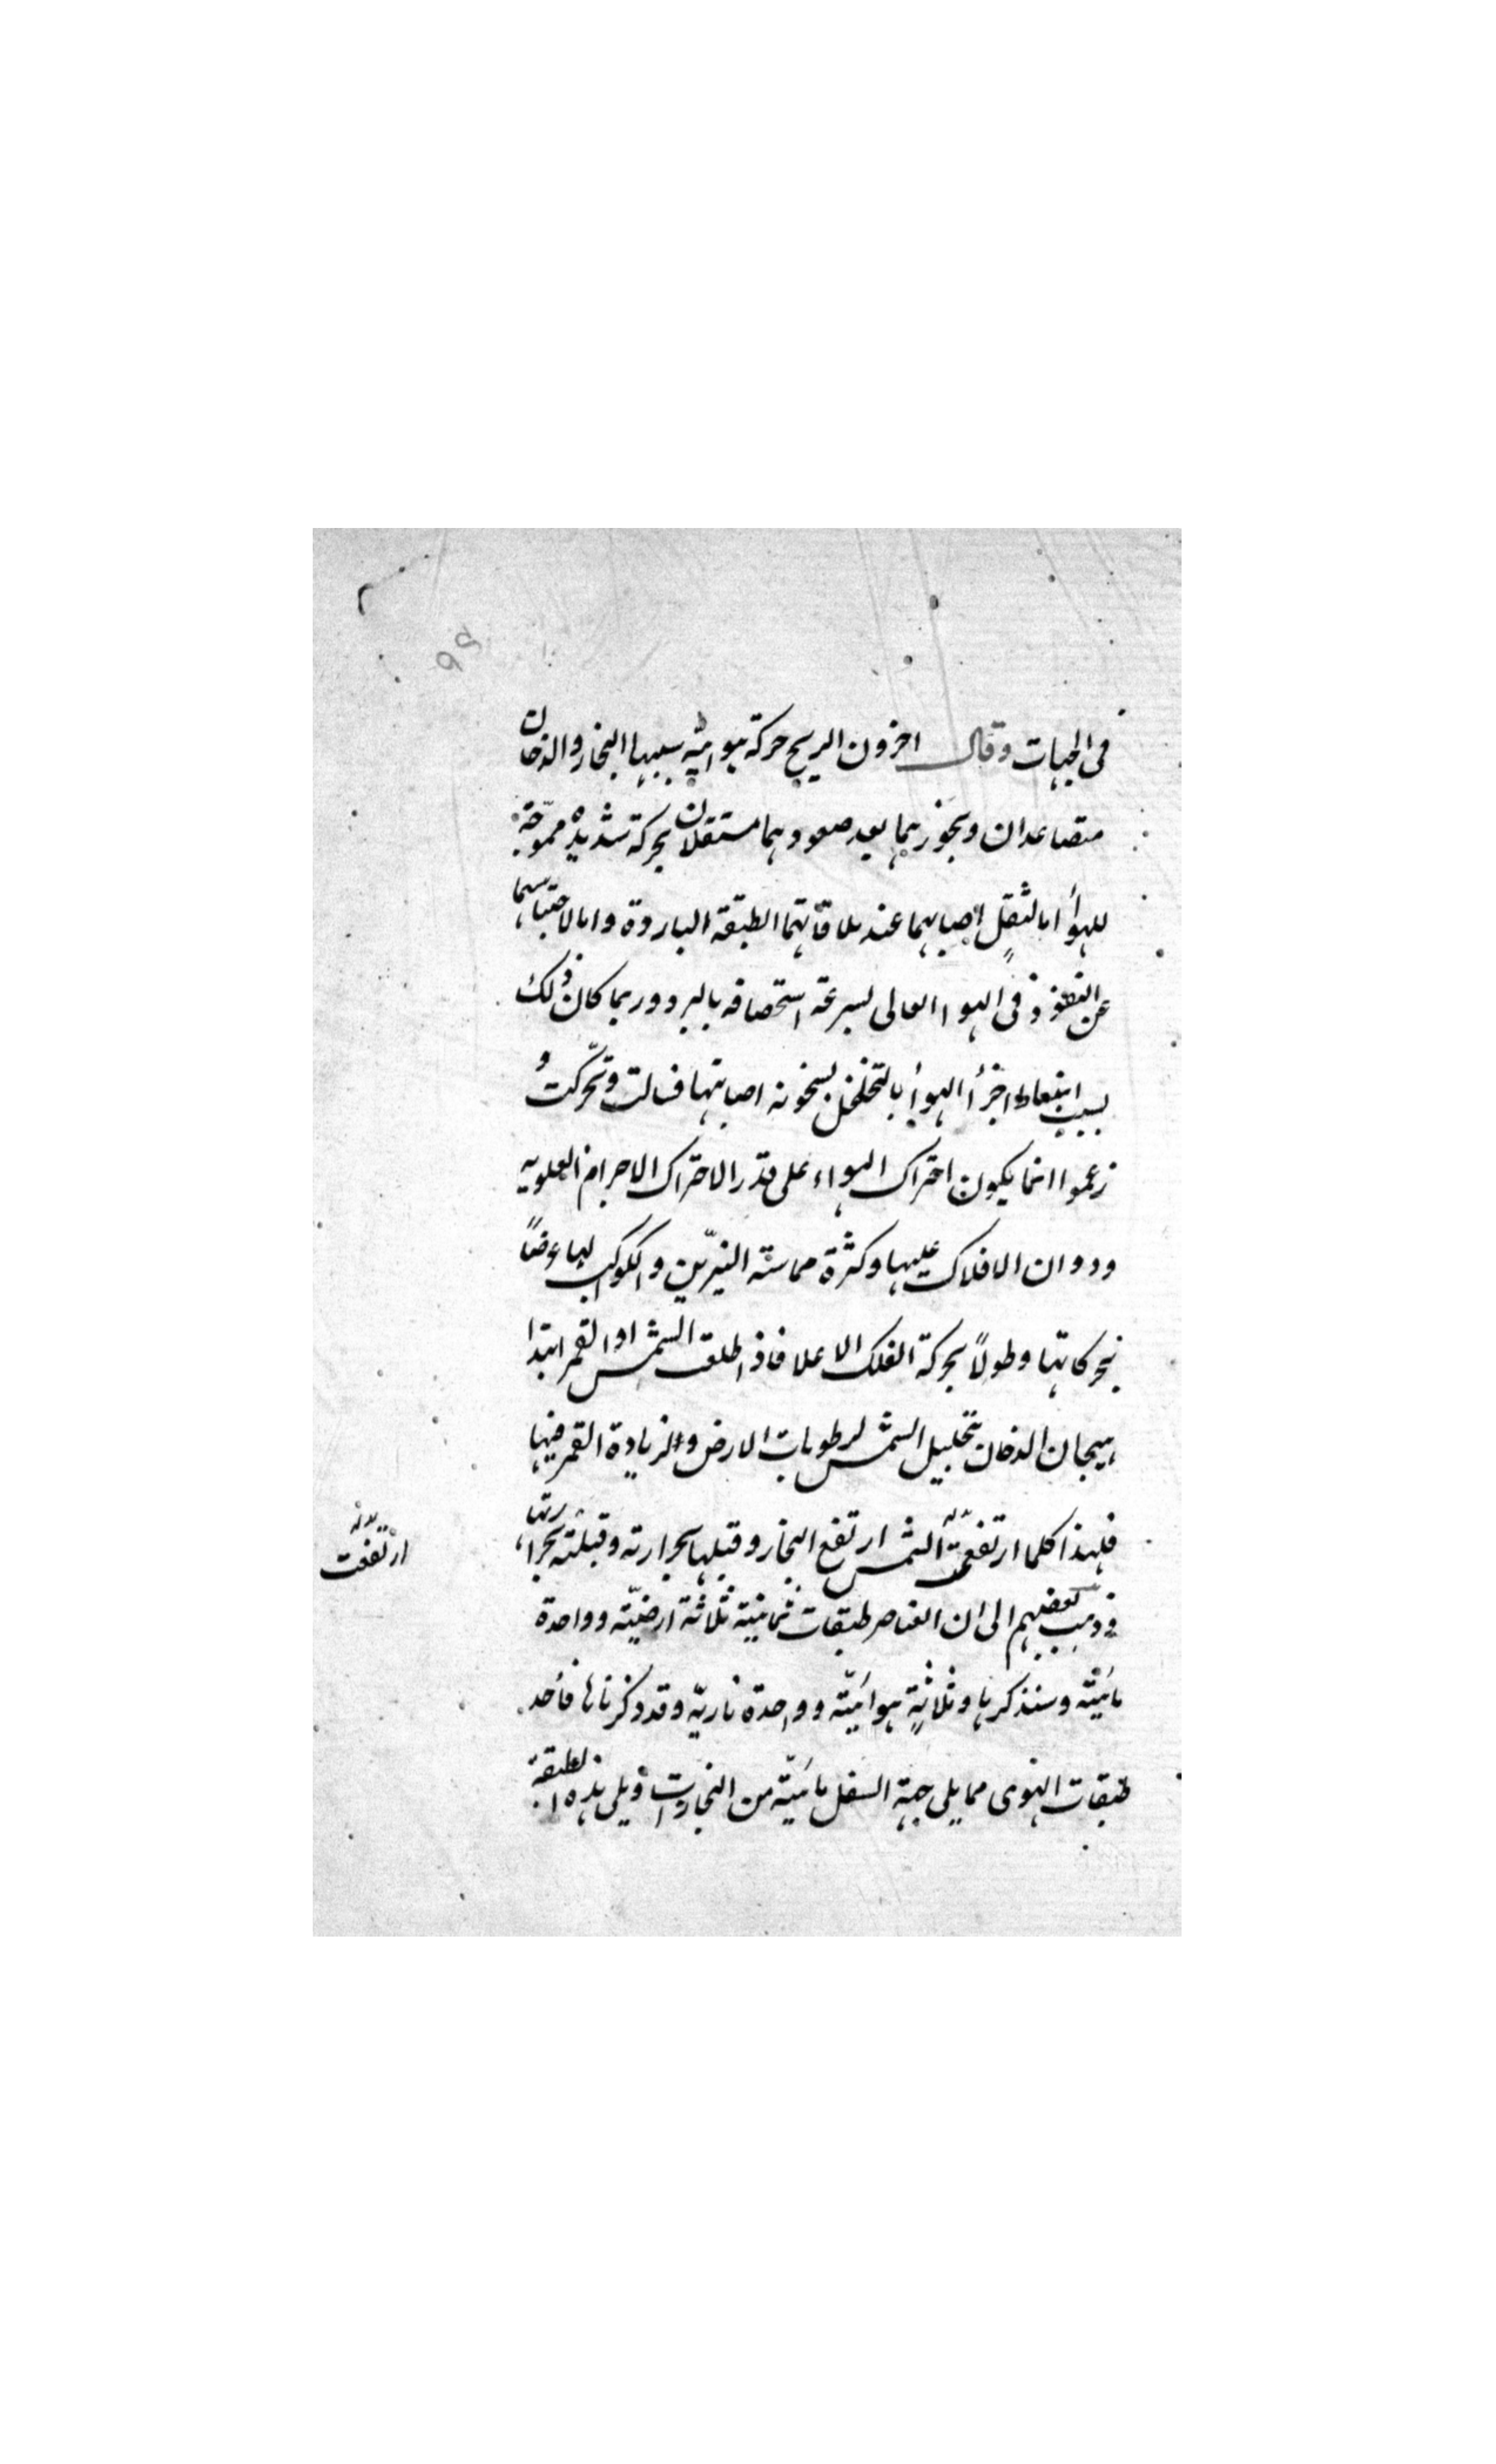 في الجهات وقال اخرون الريح حركة هوائيّه سببها البخار والدخان
متصاعدان ويجوز بهما بعد صعودهما مستقلان بحركة شديدة مموّجة
للهوأ اما لثقل اصابهما عند ملاقاتهما الطبقة الباردة واما لاحتباسهما
عن النفوذ في الهوا العالي لسرعة استحصافه بالبرد وربما كان ذلك
بسبب انبعاط اجزأ الهوأ بالتخلخل بسخونه اصابتها فسالت وتحرّكت و
زعموا انما يكون احتراك الهواء على قدر الاحتراك الاجرام العلويه
ودوران الافلاك عليها وكثرة مماسّة النيّرين والكواكب لها عرضاً
بحركاتها وطولاً بحركة الفلك الاعلا فاذ اطلق الشمس او القمر ابتدا
هيجان الدخان بتحليل الشمس لرطوبات الارض والزيادة القمر فيها
فلهذا كلما ارتفعت الشمس ارتفع البخار وقبلها بحرارته وقبلته بحرارتها
وذهب بعضهم الى ان العناصر طبقات ثمانية ثلاثة ارضيّه وواحدة
مائيّه وسنذكرها وثلاثة هوائيّه وواحدة ناريّه وقد ذكرناها فأحد
طبقات الهوى مما يلي جهة السفل مائيّة من البخارات ويلي هذه الطبقة
ارتفعت